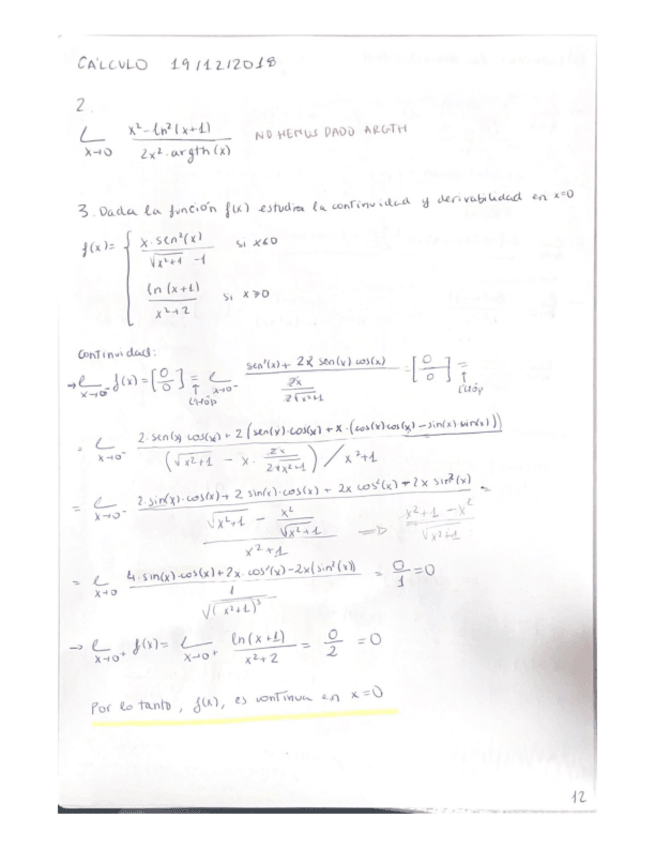 CÁLCULO 19/12/2018
2.
L x→0 x²-ln²(x+1) / 2x²·argth(x) NO HEMOS DADO ARGTH
3. Dada la función f(x) estudia la continuidad y derivabilidad en x=0
f(x)= { x·sen²(x) / √x²+1 -1 si x<0
ln(x+1) / x²+2 si x≥0
Continuidad:
→ L x→0⁻ f(x) = [0/0] = ↑ L'Hôp L x→0⁻ sen²(x)+2x sen(x) cos(x) / 2x / 2√x²+1 = [0/0] = ↑ L'Hôp
= L x→0⁻ 2·sen(x) cos(x)+2(sen(x)·cos(x)+x·(cos(x)cos(x)-sin(x)·sin(x))) / (√x²+1 - x· 2x / 2√x²+1) / x²+1
= L x→0⁻ 2·sin(x)·cos(x)+2 sin(x)·cos(x)+2x cos²(x)-2x sin²(x) / √x²+1 - x² / √x²+1 / x²+1 = ⇒ x²+1-x² / √x²+1
= L x→0 4·sin(x)·cos(x)+2x·cos²(x)-2x(sin²(x)) / 1 / √(x²+1)³ = 0/1 = 0
→ L x→0⁺ f(x) = L x→0⁺ ln(x+1) / x²+2 = 0/2 = 0
Por lo tanto, f(x), es continua en x=0
12